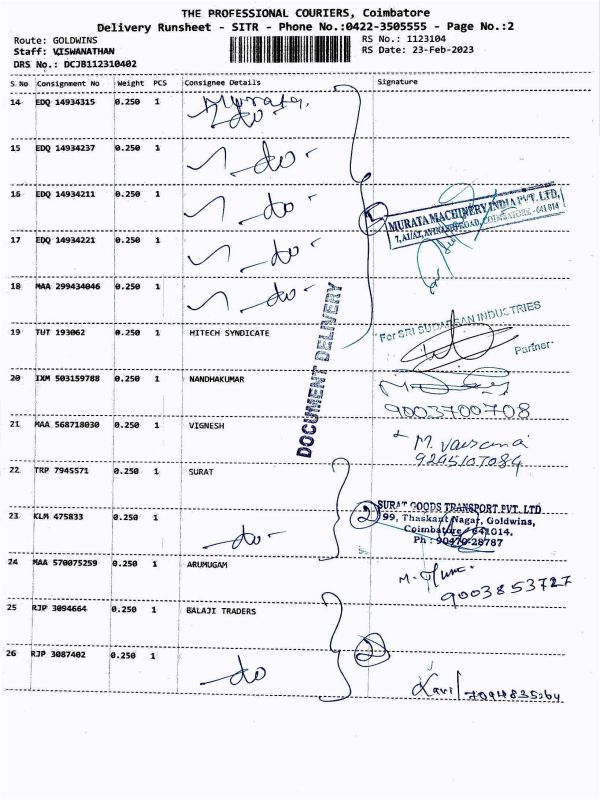 THE PROFESSIONAL COURIERS, Coimbatore
Delivery Runsheet - SITR - Phone No.:0422-3505555 - Page No.:2
Route: GOLDWINS RS No.: 1123104
Staff: VISWANATHAN RS Date: 23-Feb-2023
DRS No.: DCJB112310402
S.No Consignment No Weight PCS Consignee Details Signature
14 EDQ 14934315 0.250 1 Murata,
-do-
15 EDQ 14934237 0.250 1 -do-
16 EDQ 14934211 0.250 1 -do-
MURATA MACHINERY INDIA PVT. LTD,
7, A1/A2, AVINASHI ROAD, COIMBATORE - 641 014
17 EDQ 14934221 0.250 1 -do-
18 MAA 299434046 0.250 1 -do-
DOCUMENT DELIVERY
19 TUT 193062 0.250 1 HITECH SYNDICATE
For SRI SUDARSAN INDUSTRIES
Partner
20 IXM 503159788 0.250 1 NANDHAKUMAR
9003700708
21 MAA 568718030 0.250 1 VIGNESH
9245107084
22 TRP 7945571 0.250 1 SURAT
2 SURAT GOODS TRANSPORT PVT. LTD
99, Thaskant Nagar, Goldwins,
Coimbatore - 641014.
Ph : 90470-28787
23 KLM 475833 0.250 1 -do-
24 MAA 570075259 0.250 1 ARUMUGAM
9003853727
25 RJP 3094664 0.250 1 BALAJI TRADERS
2
26 RJP 3087402 0.250 1 -do